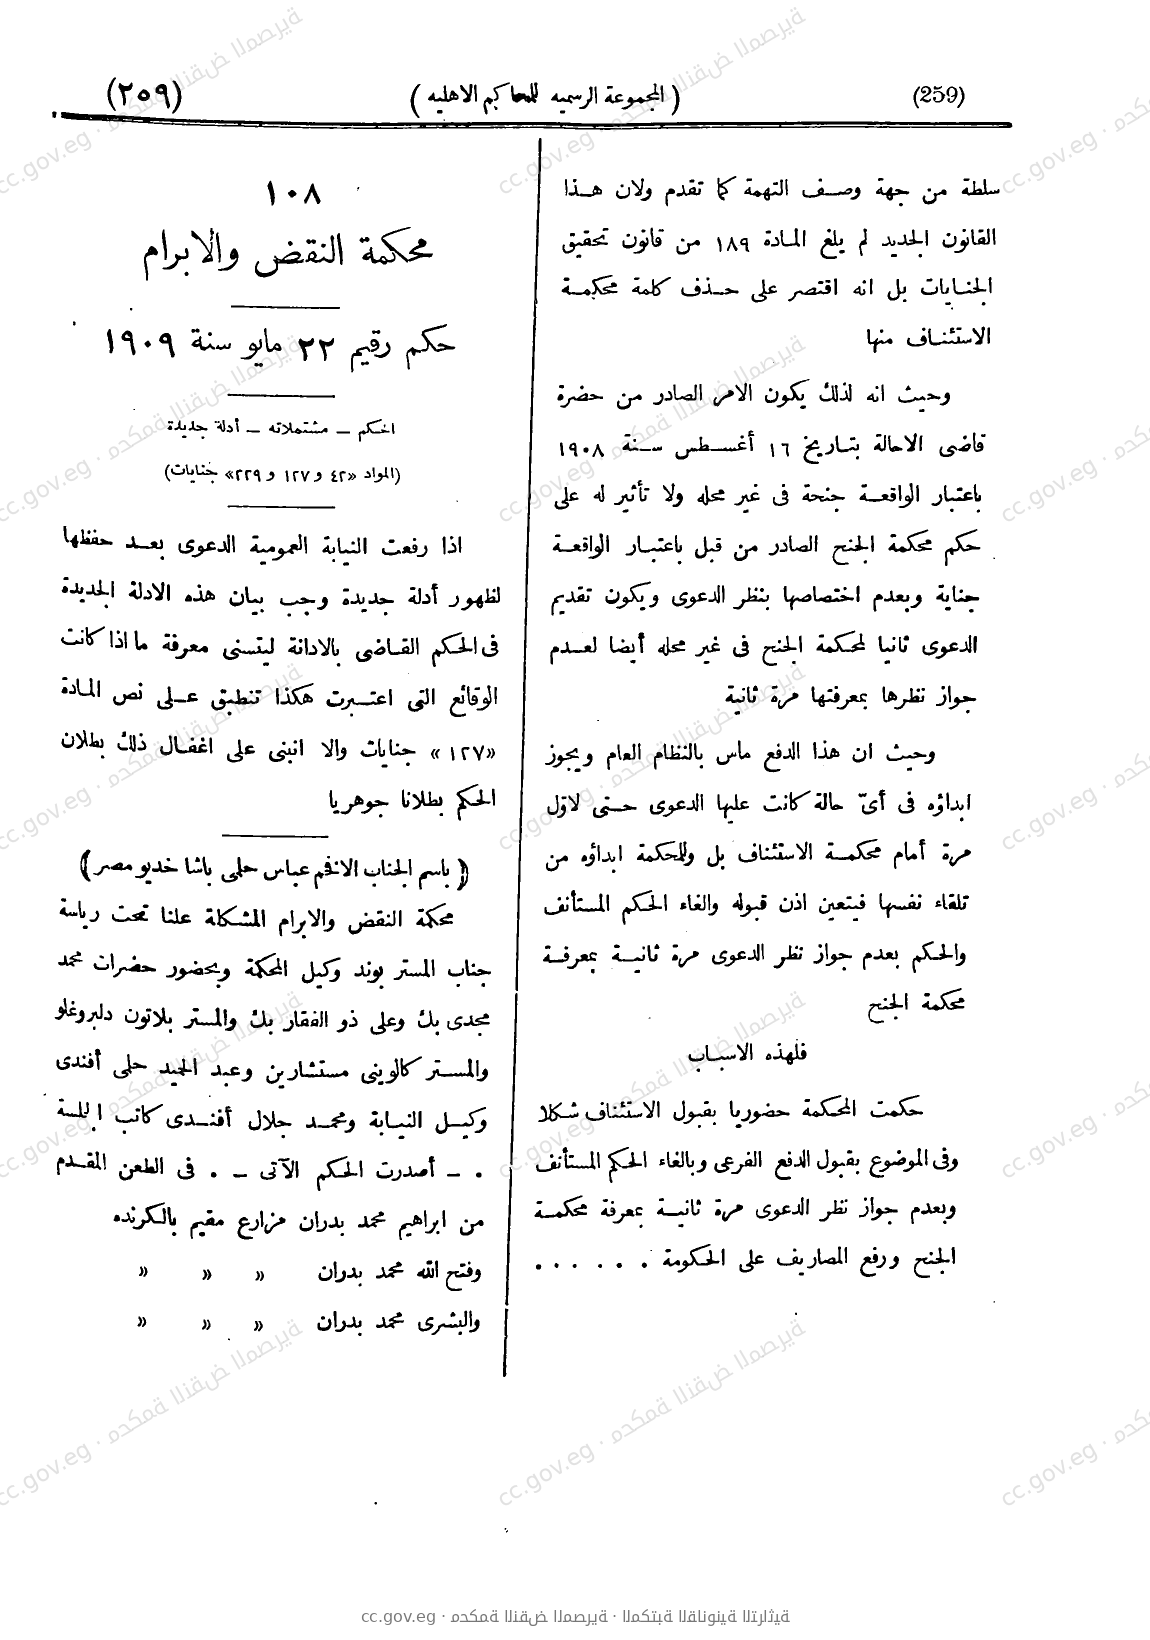 (259)
(المجموعة الرسميه للمحاكم الاهليه)
(٢٥٩)
سلطة من جهة وصف التهمة كما تقدم ولان هذا
القانون الجديد لم يلغ المادة ١٨٩ من قانون تحقيق
الجنايات بل انه اقتصر على حذف كلمة محكمة
الاستئناف منها
وحيث انه لذلك يكون الامر الصادر من حضرة
قاضى الاحالة بتاريخ ١٦ أغسطس سنة ١٩٠٨
باعتبار الواقعة جنحة فى غير محله ولا تأثير له على
حكم محكمة الجنح الصادر من قبل باعتبار الواقعة
جناية وبعدم اختصاصها بنظر الدعوى ويكون تقديم
الدعوى ثانيا لمحكمة الجنح فى غير محله أيضا لعدم
جواز نظرها بمعرفتها مرة ثانية
وحيث ان هذا الدفع ماس بالنظام العام ويجوز
ابداؤه فى أىّ حالة كانت عليها الدعوى حتى لاوّل
مرة أمام محكمة الاستئناف بل وللمحكمة ابداؤه من
تلقاء نفسها فيتعين اذن قبوله والغاء الحكم المستأنف
والحكم بعدم جواز نظر الدعوى مرة ثانية بمعرفة
محكمة الجنح
فلهذه الاسباب
حكمت المحكمة حضوريا بقبول الاستئناف شكلا
وفى الموضوع بقبول الدفع الفرعى وبالغاء الحكم المستأنف
وبعدم جواز نظر الدعوى مرة ثانية بمعرفة محكمة
الجنح ورفع المصاريف على الحكومة . . . . . .
١٠٨
محكمة النقض والابرام
حكم رقيم ٢٢ مايو سنة ١٩٠٩
الحكم – مشتملاته – أدلة جديدة
(المواد «٤٢ و ١٢٧ و ٢٢٩» جنايات)
اذا رفعت النيابة العمومية الدعوى بعد حفظها
لظهور أدلة جديدة وجب بيان هذه الادلة الجديدة
فى الحكم القاضى بالادانة ليتسنى معرفة ما اذا كانت
الوقائع التى اعتبرت هكذا تنطبق على نص المادة
«١٢٧» جنايات والا انبنى على اغفال ذلك بطلان
الحكم بطلانا جوهريا
(باسم الجناب الافخم عباس حلمى باشا خديو مصر)
محكمة النقض والابرام المشكلة علنا تحت رياسة
جناب المستر بوند وكيل المحكمة وبحضور حضرات محمد
مجدى بك وعلى ذو الفقار بك والمستر بلاتون دلبروغلو
والمستر كالوينى مستشارين وعبد الحميد حلمى أفندى
وكيل النيابة ومحمد جلال أفندى كاتب الجلسة
. – أصدرت الحكم الآتى – . فى الطعن المقدم
من ابراهيم محمد بدران مزارع مقيم بالكرنده
وفتح الله محمد بدران » » »
والبشرى محمد بدران » » »
cc.gov.eg · محكمة النقض المصرية · المكتبة القانونية التراثية